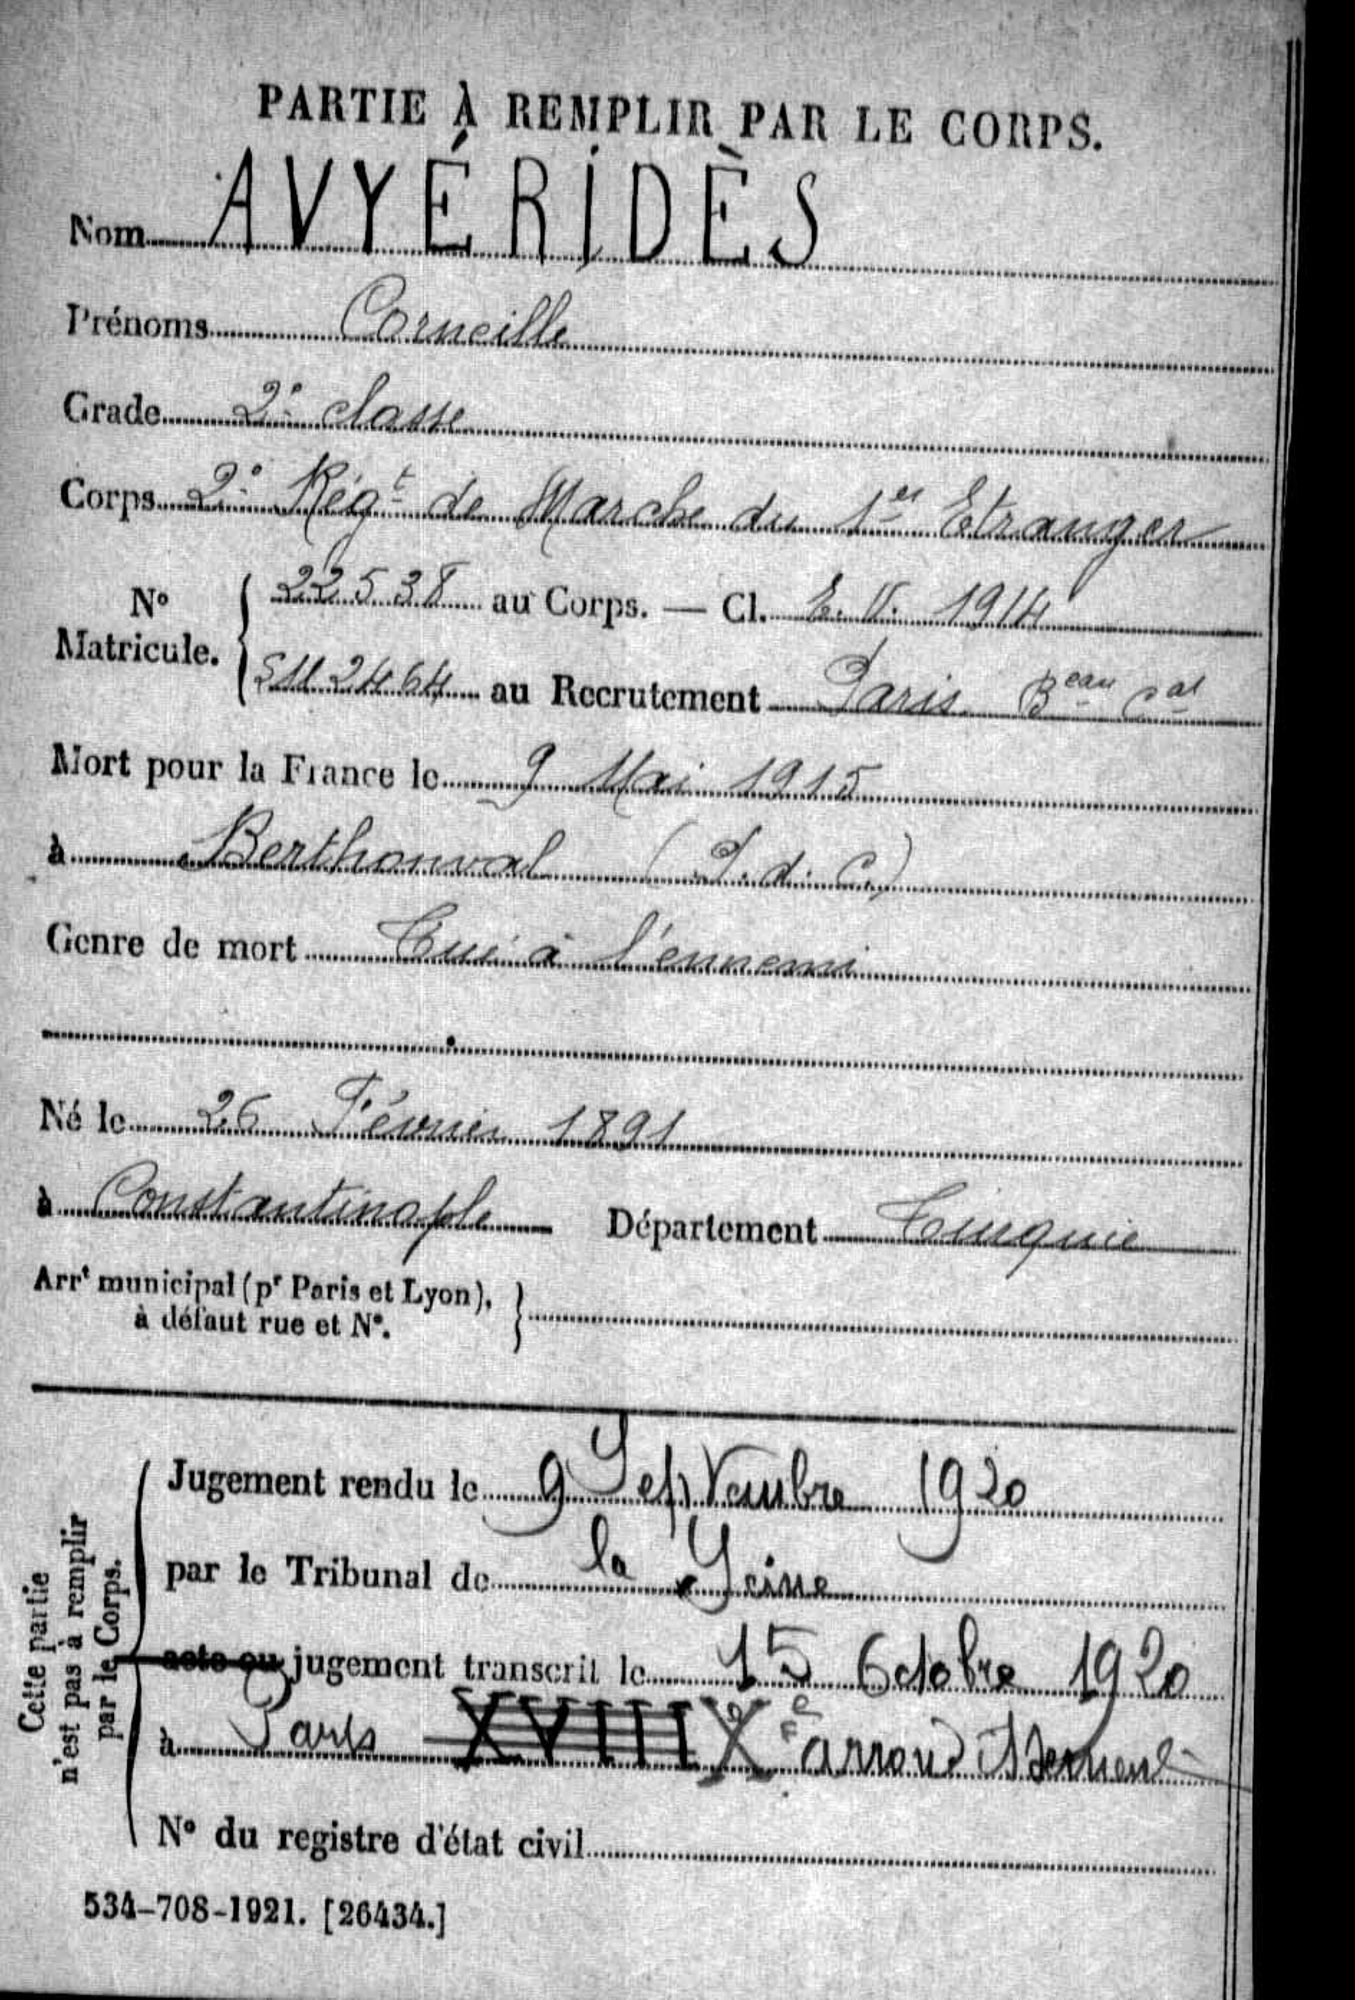 PARTIE À REMPLIR PAR LE CORPS.
Nom AVYÉRIDÈS
Prénoms Corneille
Grade 2e classe
Corps 2e Régt de Marche du 1er Etranger
No Matricule. { 22538 au Corps. — Cl. E.V. 1914
2464 au Recrutement Paris Beau Cal
Mort pour la France le 9 Mai 1915
à Berthonval (P. d. C.)
Genre de mort Tué à l'ennemi
Né le 26 Février 1891
à Constantinople Département Turquie
Arrt municipal (pr Paris et Lyon), à défaut rue et No. }
Cette partie n'est pas à remplir par le Corps.
Jugement rendu le 9 Septembre 1920
par le Tribunal de la Seine
acte ou jugement transcrit le 15 Octobre 1920
à Paris XVIII Xe arrondissement
No du registre d'état civil
534-708-1921. [26434.]